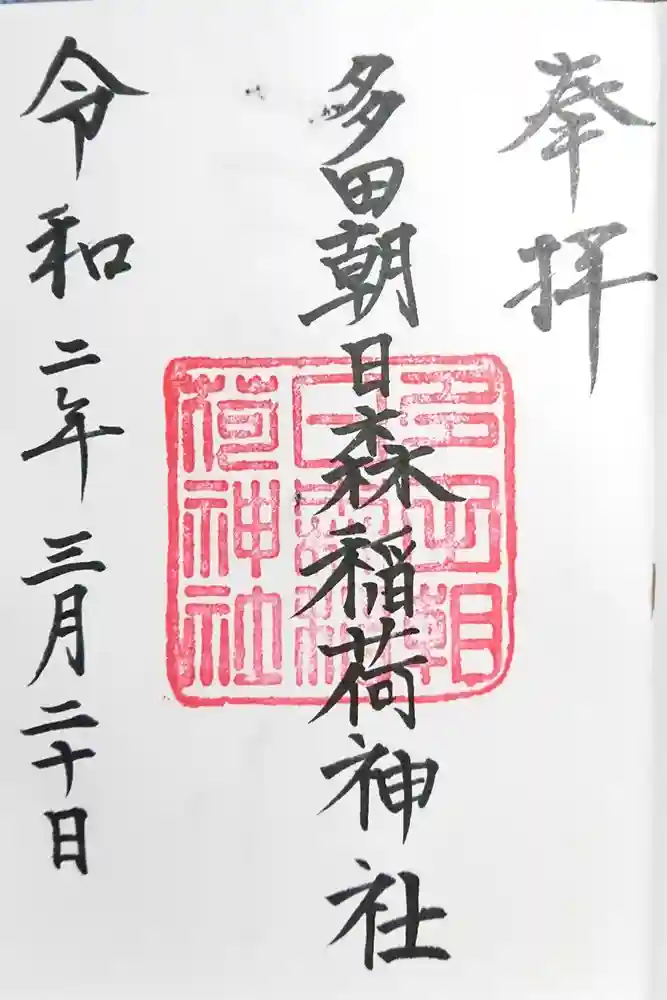 奉拝
多田朝日森稲荷神社
多田朝
日森稲
荷神社
令和二年三月二十日